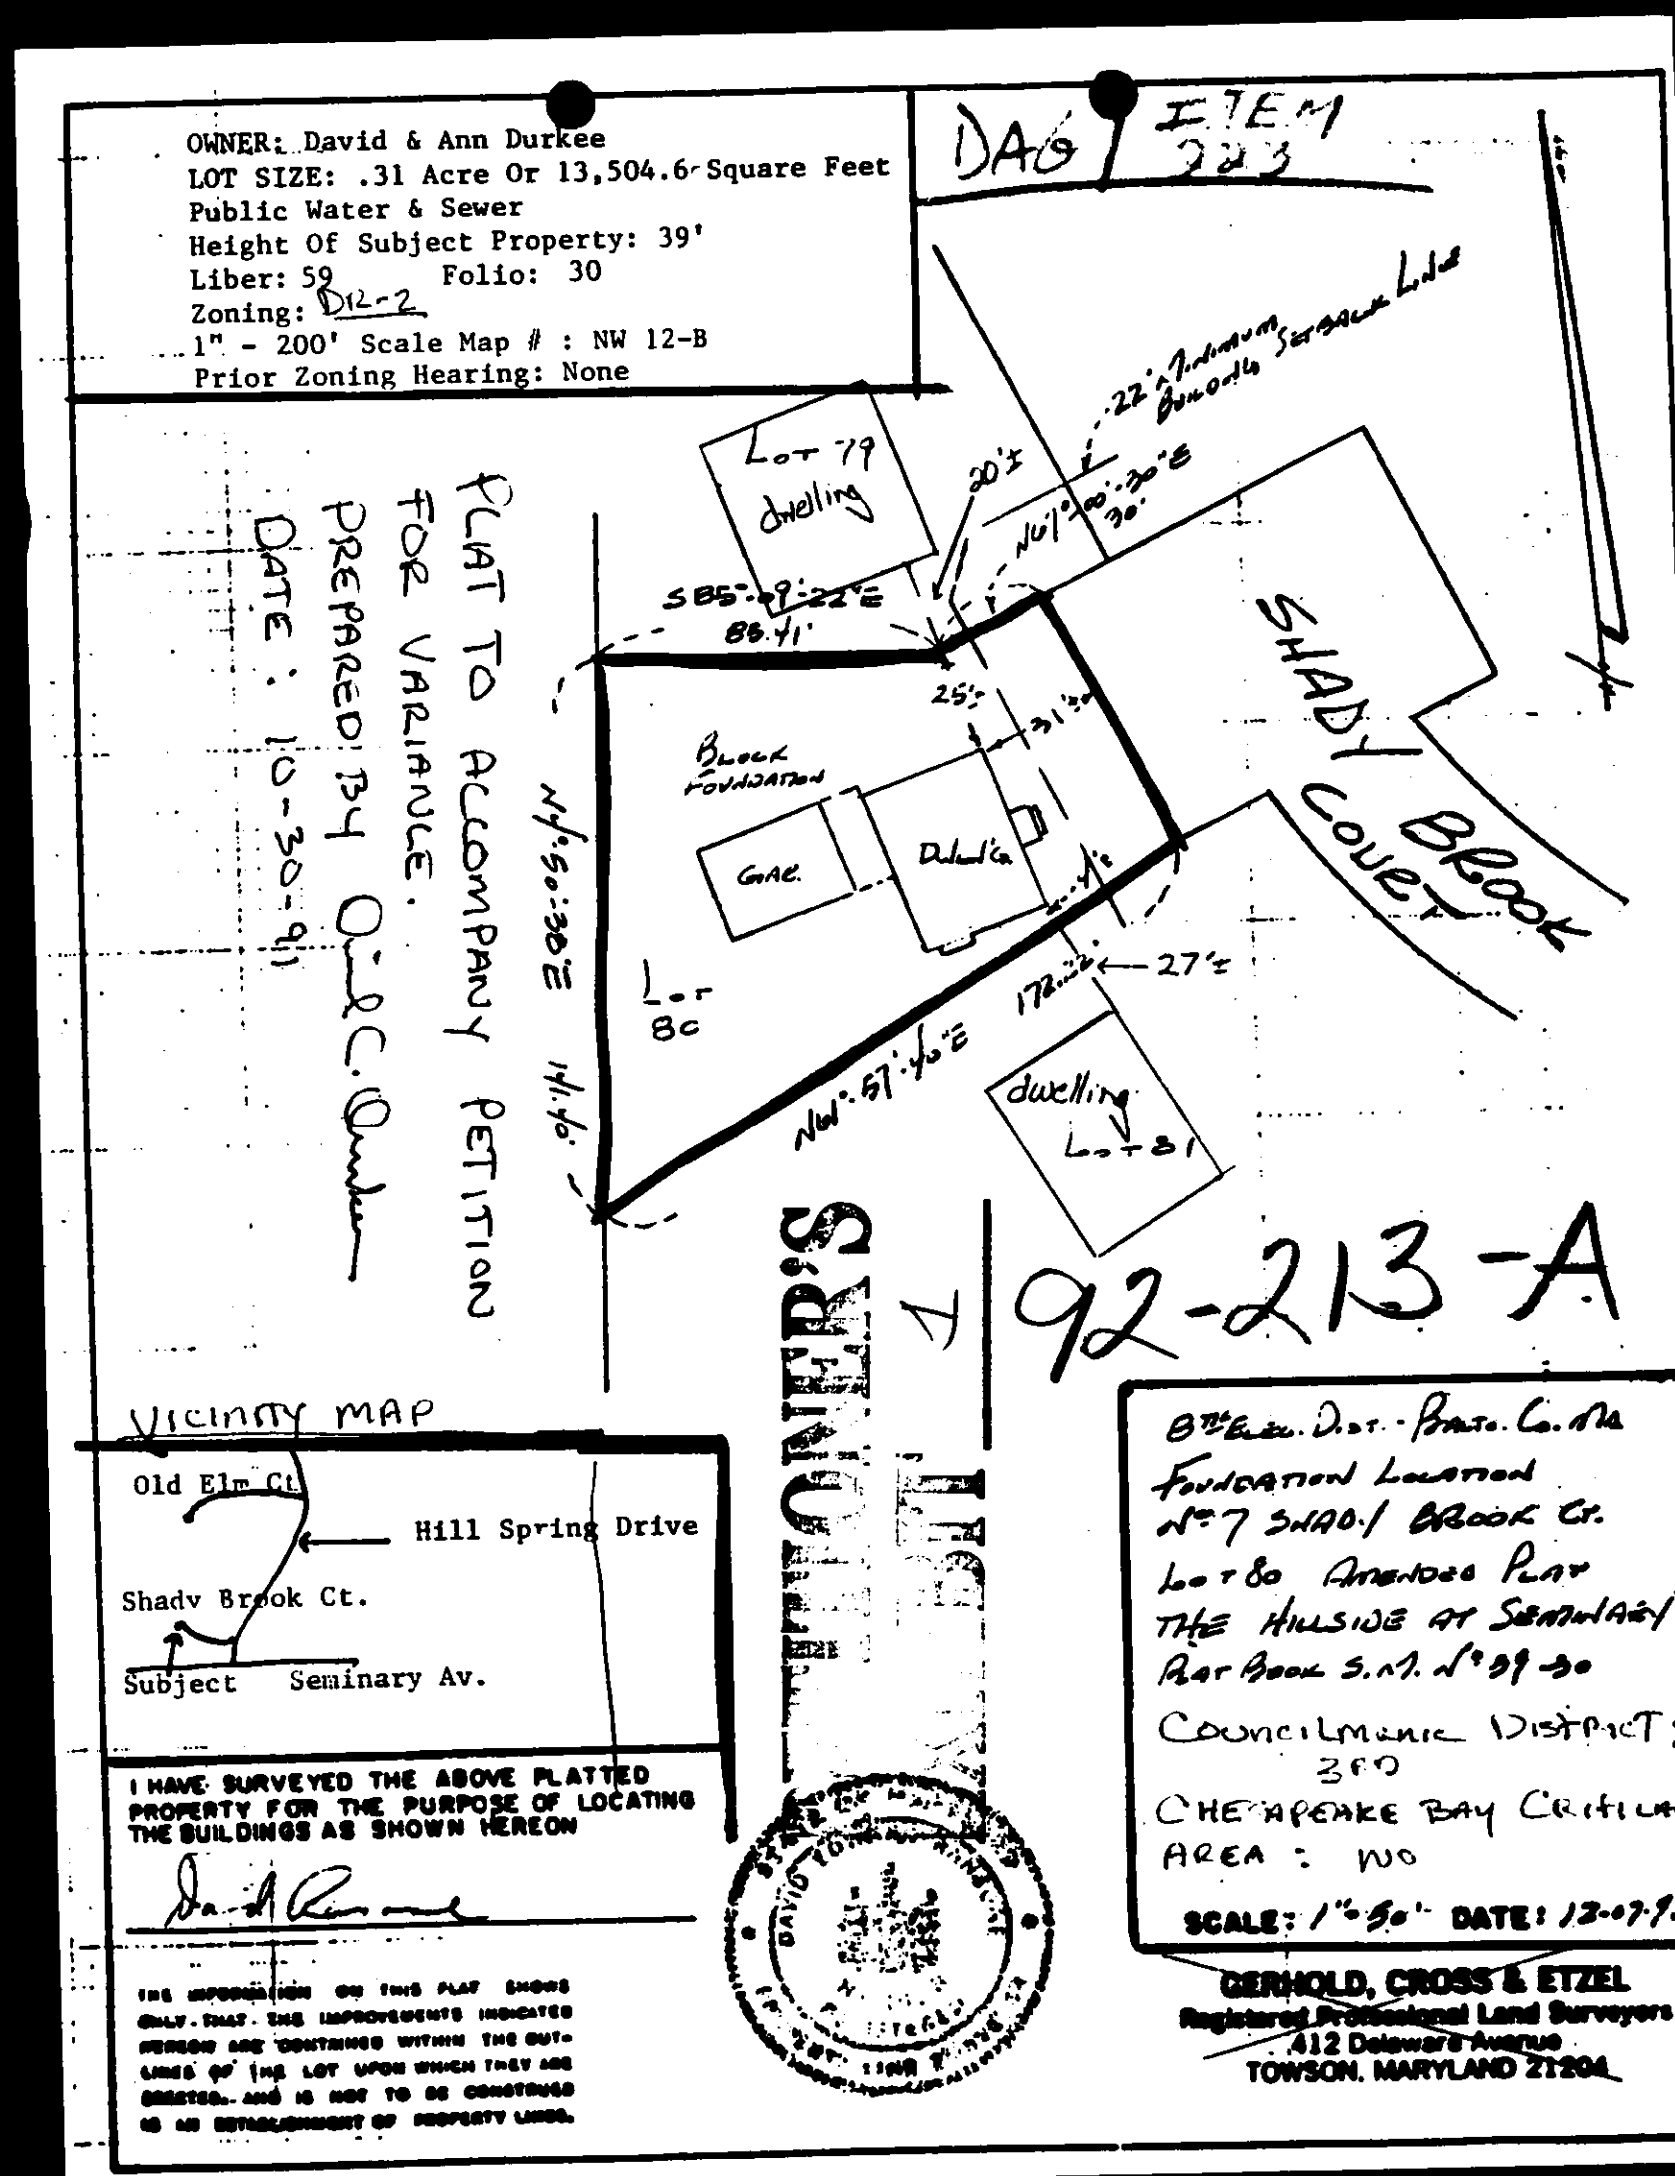 OWNER: David & Ann Durkee
LOT SIZE: .31 Acre Or 13,504.6 Square Feet
Public Water & Sewer
Height Of Subject Property: 39'
Liber: 59 Folio: 30
Zoning: DR-2
1" - 200' Scale Map # : NW 12-B
Prior Zoning Hearing: None
DAG ITEM
223
22' Minimum
Building Setback Line
Lot 79
dwelling
20'±
N61°-00'-30"E
30'
S85°-09'-22"E
88.41'
25'±
31'±
Block
Foundation
Gar.
Lot
80
172.22'
27'±
dwelling
Lot 81
SHADY
BROOK
COURT
PLAT TO ACCOMPANY PETITION
FOR VARIANCE.
PREPARED BY
DATE : 10-30-91
141.40'
PETITIONER'S
1
92-213-A
VICINITY MAP
Old Elm Ct
Hill Spring Drive
Shady Brook Ct.
Subject Seminary Av.
I HAVE SURVEYED THE ABOVE PLATTED
PROPERTY FOR THE PURPOSE OF LOCATING
THE BUILDINGS AS SHOWN HEREON
THE INFORMATION ON THIS PLAT SHOWS
ONLY THAT THE IMPROVEMENTS INDICATED
HEREON ARE CONTAINED WITHIN THE OUT-
LINES OF THE LOT UPON WHICH THEY ARE
ERECTED. AND IS NOT TO BE CONSTRUED
AS AN ESTABLISHMENT OF PROPERTY LINES.
8TH Elec. Dist. - Balto. Co. Md
Foundation Location
No 7 Shady Brook Ct.
Lot 80 Amended Plat
THE HILLSIDE AT SEMINARY
Plat Book S.M. No 59-30
COUNCILMANIC DISTRICT:
3RD
CHESAPEAKE BAY CRITICA
AREA : NO
SCALE: 1"=50' DATE: 12-07-
GERHOLD, CROSS & ETZEL
Registered Professional Land Surveyors
412 Delaware Avenue
TOWSON, MARYLAND 21204